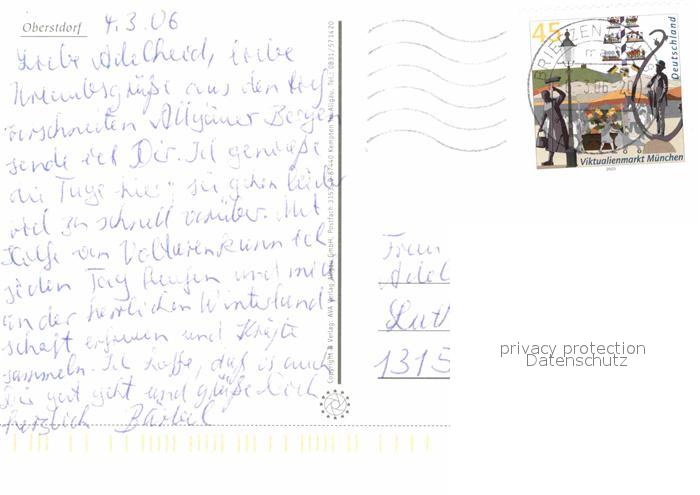 Oberstdorf 4.3.06
Liebe Adelheid, liebe
Urlaubsgrüße aus den tief
verschneiten Allgäuer Bergen
sende ich Dir. Ich genieße
die Tage hier; sie gehen leider
viel zu schnell vorüber. Mit
Hilfe von Voltaren kann ich
jeden Tag laufen und mich
an der herrlichen Winterland-
schaft erfreuen und Kräfte
sammeln. Ich hoffe, daß es auch
Dir gut geht und grüße Dich
herzlich Bärbel
Copyright & Verlag: AVA Verlag Allgäu GmbH, Postfach 3153, D-87440 Kempten im Allgäu, Tel.: 0831/571420
45
Deutschland
Viktualienmarkt München
2003
BRIEFZEN
Frau
Adel
Lut
1315
privacy protection
Datenschutz